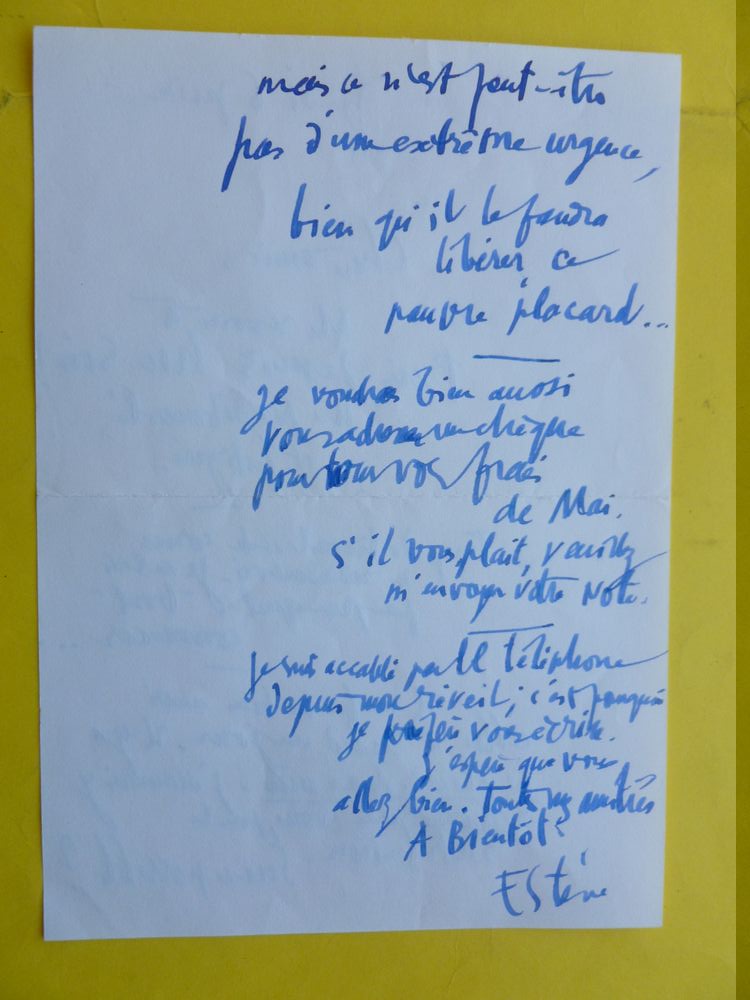 mais ce n'est peut-être
pas d'une extrême urgence,
bien qu'il le faudra
libérer ce
pauvre placard...
je voudrais bien aussi
vous adresser un chèque
pour tous vos frais
de Mai.
S'il vous plaît, veuillez
m'envoyer votre note.
Je suis accablé par le téléphone
depuis mon réveil; c'est pourquoi
je préfère vous écrire.
J'espère que vous
allez bien. Toutes mes amitiés
A Bientôt
Estève